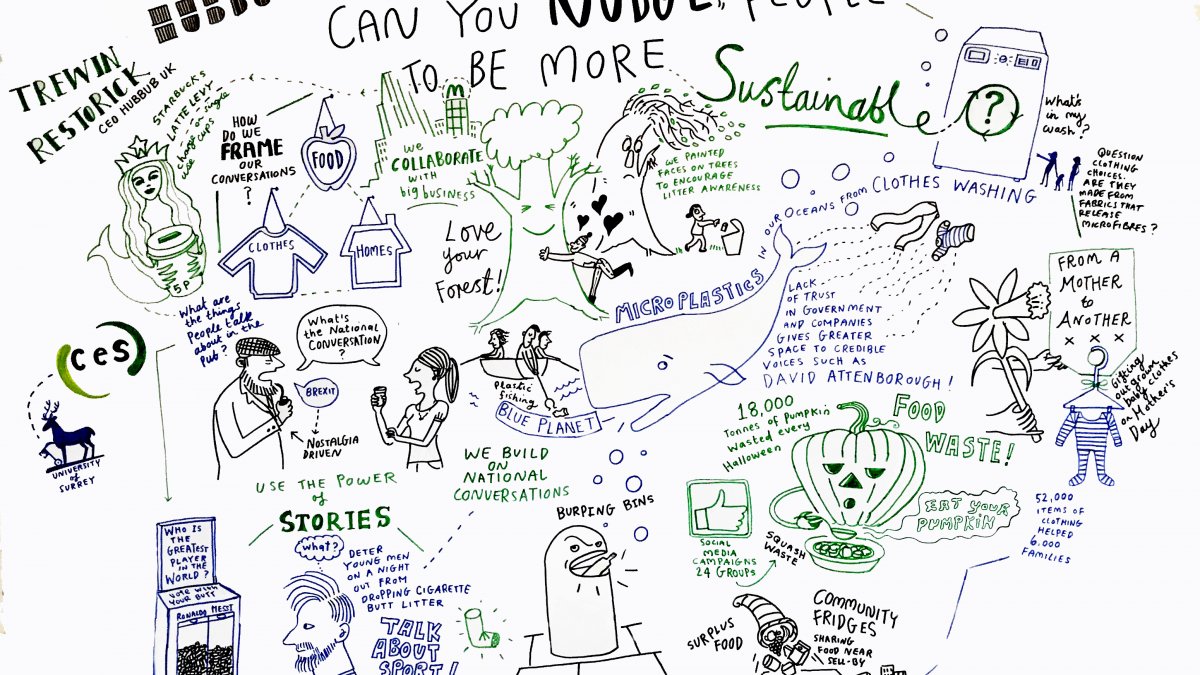 HUBBU
CAN YOU NUDGE PEOPLE
TO BE MORE
Sustainable
TREWIN
RESTORICK
CEO HUBBUB UK
STARBUCKS
LATTE LEVY -
charge on single
use cups
5P
HOW
DO WE
FRAME
OUR
CONVERSATIONS
?
FOOD
CLOTHES
HOMES
we
COLLABORATE
with
big business
Love
your
Forest!
WE PAINTED
FACES ON TREES
TO ENCOURAGE
LITTER AWARENESS
MICROPLASTICS IN OUR OCEANS FROM CLOTHES WASHING
?
What's
in my
wash?
QUESTION
CLOTHING
CHOICES.
ARE THEY
MADE FROM
FABRICS THAT
RELEASE
MICROFIBRES?
LACK
OF TRUST
IN GOVERNMENT
AND COMPANIES
GIVES GREATER
SPACE TO CREDIBLE
VOICES SUCH AS
DAVID ATTENBOROUGH!
FROM A
MOTHER
to
ANOTHER
x x x
Gifting
outgrown
baby clothes
on Mother's
Day
52,000
ITEMS OF
CLOTHING
HELPED
6.000
FAMILIES
ces
UNIVERSITY
of
SURREY
What are
the things
people talk
about in the
Pub?
What's
the National
CONVERSATION
?
BREXIT
NOSTALGIA
DRIVEN
Plastic
fishing
BLUE PLANET
WE BUILD
ON
NATIONAL
CONVERSATIONS
USE THE POWER
of
STORIES
WHO IS
THE
GREATEST
PLAYER
IN THE
WORLD?
VOTE WITH
YOUR BUTT
RONALDO MESSI
what?
DETER
YOUNG MEN
ON A NIGHT
OUT FROM
DROPPING CIGARETTE
BUTT LITTER
TALK
ABOUT
SPORT!
BURPING BINS
18,000
Tonnes of Pumpkin
Wasted every
Halloween
FOOD
WASTE!
EAT YOUR
PUMPKIN
SOCIAL
MEDIA
CAMPAIGNS
24 GROUPS
SQUASH
WASTE
SURPLUS
FOOD
COMMUNITY
FRIDGES
SHARING
FOOD NEAR
SELL-BY